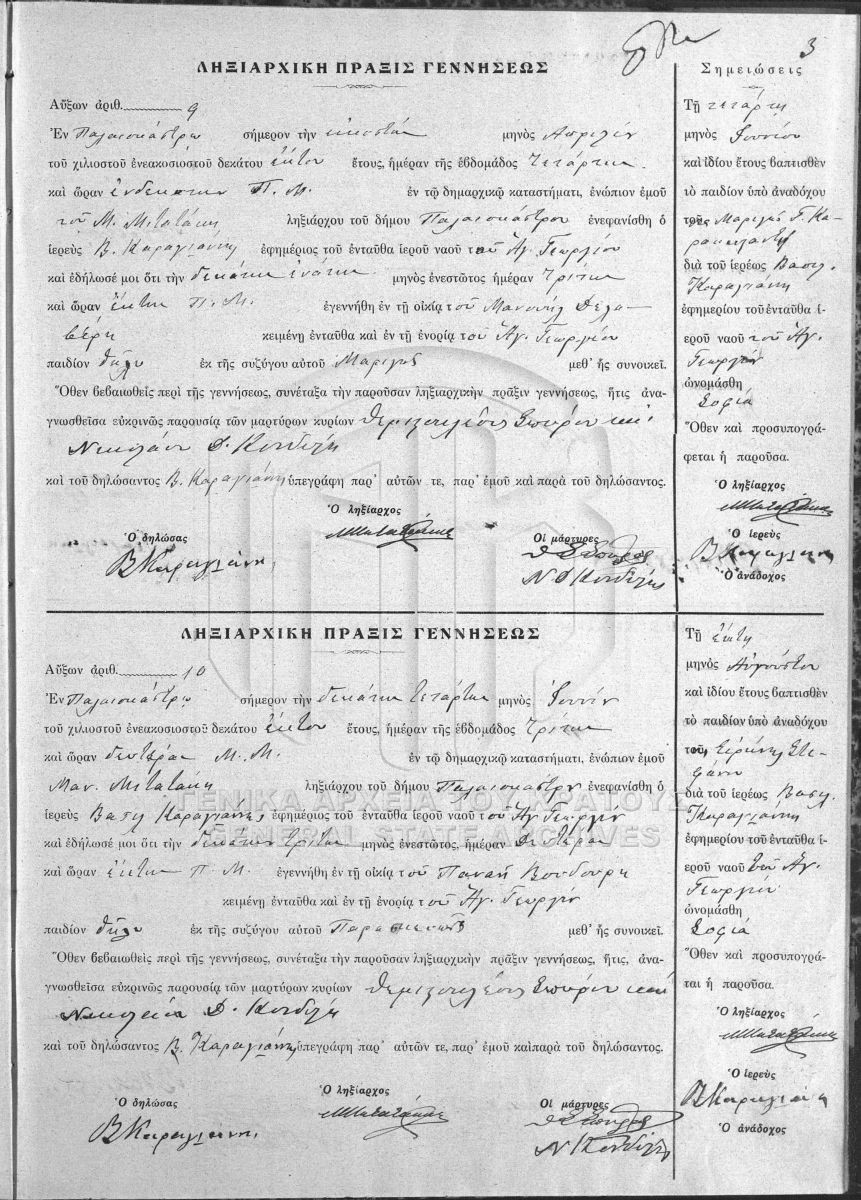 3
ΛΗΞΙΑΡΧΙΚΗ ΠΡΑΞΙΣ ΓΕΝΝΗΣΕΩΣ
Αὔξων ἀριθ. 9
Ἐν Παλαιοκάστρῳ σήμερον τὴν εἰκοστὴν μηνὸς Ἀπριλίου
τοῦ χιλιοστοῦ ἐνεακοσιοστοῦ δεκάτου ἕκτου ἔτους, ἡμέραν τῆς ἑβδομάδος Τετάρτην
καὶ ὥραν ἑνδεκάτην Π. Μ. ἐν τῷ δημαρχικῷ καταστήματι, ἐνώπιον ἐμοῦ
τοῦ Μ. Μιτατάκη ληξιάρχου τοῦ δήμου Παλαιοκάστρου ἐνεφανίσθη ὁ
ἱερεὺς Β. Καραγιάννη ἐφημέριος τοῦ ἐνταῦθα ἱεροῦ ναοῦ τοῦ Ἁγ. Γεωργίου
καὶ ἐδήλωσέ μοι ὅτι τὴν δεκάτην ἐνάτην μηνὸς ἐνεστῶτος ἡμέραν Τρίτην
καὶ ὥραν ἕκτην Π. Μ. ἐγεννήθη ἐν τῇ οἰκίᾳ τοῦ Μανουὴλ Δελα-
βέρη κειμένῃ ἐνταῦθα καὶ ἐν τῇ ἐνορίᾳ τοῦ Ἁγ. Γεωργίου
παιδίον θῆλυ ἐκ τῆς συζύγου αὐτοῦ Μαριγῶς μεθ' ἧς συνοικεῖ.
Ὅθεν βεβαιωθεὶς περὶ τῆς γεννήσεως, συνέταξα τὴν παροῦσαν ληξιαρχικὴν πρᾶξιν γεννήσεως, ἥτις ἀνα-
γνωσθεῖσα εὐκρινῶς παρουσίᾳ τῶν μαρτύρων κυρίων Θεμιστοκλέους Σπύρου καὶ
Νικολάου Δ. Κονδύλη
καὶ τοῦ δηλώσαντος Β. Καραγιάννη ὑπεγράφη παρ' αὐτῶν τε, παρ' ἐμοῦ καὶ παρὰ τοῦ δηλώσαντος.
Ὁ δηλώσας
Ὁ ληξίαρχος
Οἱ μάρτυρες
ΒΚαραγιάννη
ΜΜιτατάκης
Ν Δ Κονδύλης
Σημειώσεις
Τῇ τετάρτῃ
μηνὸς Ἰουνίου
καὶ ἰδίου ἔτους βαπτισθὲν
τὸ παιδίον ὑπὸ ἀναδόχου
τῆς Μαριγῶς Γ. Κα-
διὰ τοῦ ἱερέως Βασιλ.
Καραγιάννη
ἐφημερίου τοῦ ἐνταῦθα ἱ-
εροῦ ναοῦ τοῦ Ἁγ.
Γεωργίου
ὠνομάσθη
Σοφία
Ὅθεν καὶ προσυπογρά-
φεται ἡ παροῦσα.
Ὁ ληξίαρχος
ΜΜιτατάκης
Ὁ ἱερεὺς
ΒΚαραγιάννη
Ὁ ἀνάδοχος
ΛΗΞΙΑΡΧΙΚΗ ΠΡΑΞΙΣ ΓΕΝΝΗΣΕΩΣ
Αὔξων ἀριθ. 10
Ἐν Παλαιοκάστρῳ σήμερον τὴν δεκάτην τετάρτην μηνὸς Ἰουνίου
τοῦ χιλιοστοῦ ἐνεακοσιοστοῦ δεκάτου ἕκτου ἔτους, ἡμέραν τῆς ἑβδομάδος Τρίτην
καὶ ὥραν δευτέραν Μ. Μ. ἐν τῷ δημαρχικῷ καταστήματι, ἐνώπιον ἐμοῦ
Μαν. Μιτατάκη ληξιάρχου τοῦ δήμου Παλαιοκάστρου ἐνεφανίσθη ὁ
ἱερεὺς Βασιλ Καραγιάννης ἐφημέριος τοῦ ἐνταῦθα ἱεροῦ ναοῦ τοῦ Ἁγ Γεωργίου
καὶ ἐδήλωσέ μοι ὅτι τὴν δεκάτην τρίτην μηνὸς ἐνεστῶτος, ἡμέραν Δευτέραν
καὶ ὥραν ἕκτην Π. Μ. ἐγεννήθη ἐν τῇ οἰκίᾳ τοῦ Παναῆ Βουδούρη
κειμένῃ ἐνταῦθα καὶ ἐν τῇ ἐνορίᾳ τοῦ Ἁγ. Γεωργίου
παιδίον θῆλυ ἐκ τῆς συζύγου αὐτοῦ Παρασκευῆς μεθ' ἧς συνοικεῖ.
Ὅθεν βεβαιωθεὶς περὶ τῆς γεννήσεως, συνέταξα τὴν παροῦσαν ληξιαρχικὴν πρᾶξιν γεννήσεως, ἥτις, ἀνα-
γνωσθεῖσα εὐκρινῶς παρουσίᾳ τῶν μαρτύρων κυρίων Θεμιστοκλέους Σπύρου καὶ
Νικολάου Δ. Κονδύλη
καὶ τοῦ δηλώσαντος Β. Καραγιάννη ὑπεγράφη παρ' αὐτῶν τε, παρ' ἐμοῦ καὶπαρὰ τοῦ δηλώσαντος.
Ὁ δηλώσας
Ὁ ληξίαρχος
Οἱ μάρτυρες
ΒΚαραγιάννη
ΜΜιτατάκης
Ν Κονδύλης
Τῇ ἕκτῃ
μηνὸς Αὐγούστου
καὶ ἰδίου ἔτους βαπτισθὲν
τὸ παιδίον ὑπὸ ἀναδόχου
τῆς Εἰρήνης Στε-
φάνου
διὰ τοῦ ἱερέως Βασιλ.
Καραγιάννη
ἐφημερίου τοῦ ἐνταῦθα ἱ-
εροῦ ναοῦ τοῦ Ἁγ.
Γεωργίου
ὠνομάσθη
Σοφία
Ὅθεν καὶ προσυπογρά-
ται ἡ παροῦσα.
Ὁ ληξίαρχος
ΜΜιτατάκης
Ὁ ἱερεὺς
ΒΚαραγιάννη
Ὁ ἀνάδοχος
ΓΕΝΙΚΑ ΑΡΧΕΙΑ ΤΟΥ ΚΡΑΤΟΥΣ
GENERAL STATE ARCHIVES